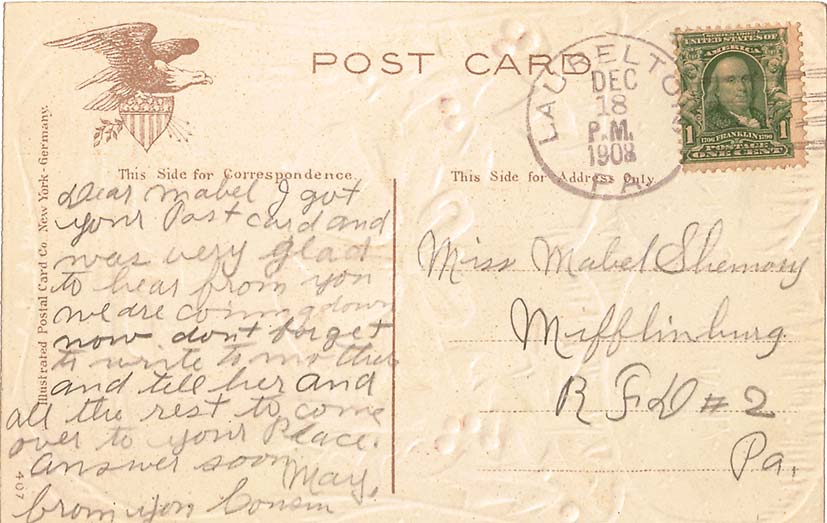 POST CARD
LAURELTON
DEC
18
P.M.
1908
PA
SERIES 1902
UNITED STATES OF
AMERICA
1 1706 FRANKLIN 1790 1
POSTAGE
ONE CENT
Illustrated Postal Card Co. New York - Germany.
407
This Side for Correspondence.
Dear Mabel I got
your Post card and
was very glad
to hear from you
we are coming down
now dont forget
to write to mother
and tell her and
all the rest to come
over to your Place.
answer soon
May,
from you Cousin
This Side for Address Only.
Miss Mabel Shemory
Mifflinburg
R F D # 2
Pa.